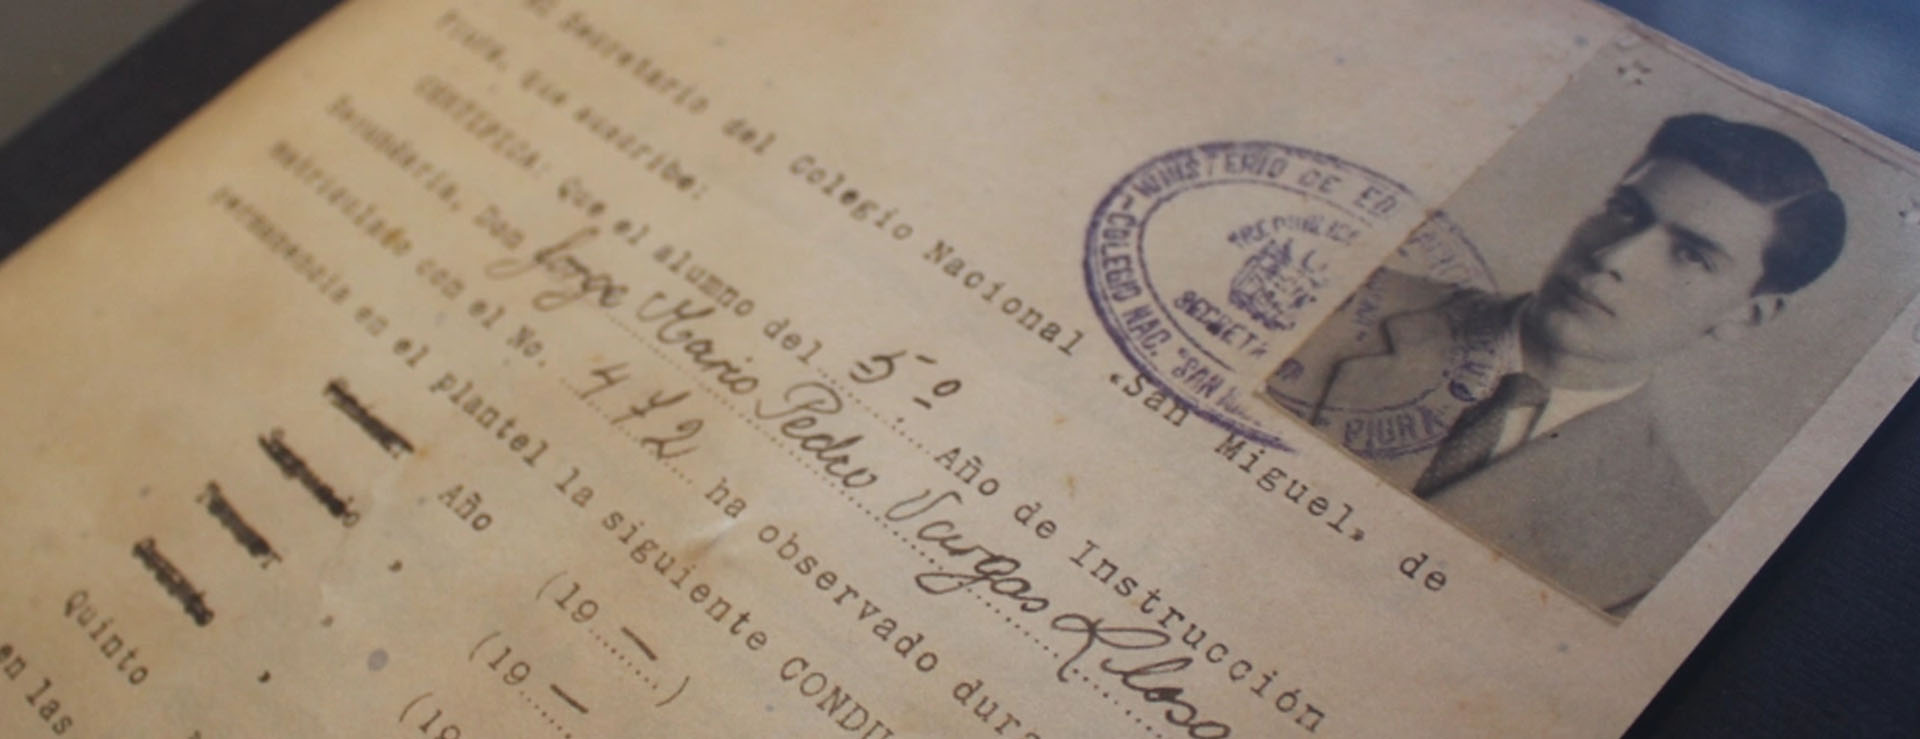 El Secretario del Colegio Nacional «San Miguel» de
Piura, que suscribe:
CERTIFICA: Que el alumno del 5º Año de Instrucción
Secundaria, Don Jorge Mario Pedro Vargas Llosa
Matriculado con el No. 472 ha observado dura
permanencia en el plantel la siguiente CONDU
Año (19 — )
, (19 —
, (19
,
Quinto
en las
MINISTERIO DE ED
COLEGIO NAC. "SAN
REPUBLICA
SECRETA
PIURA